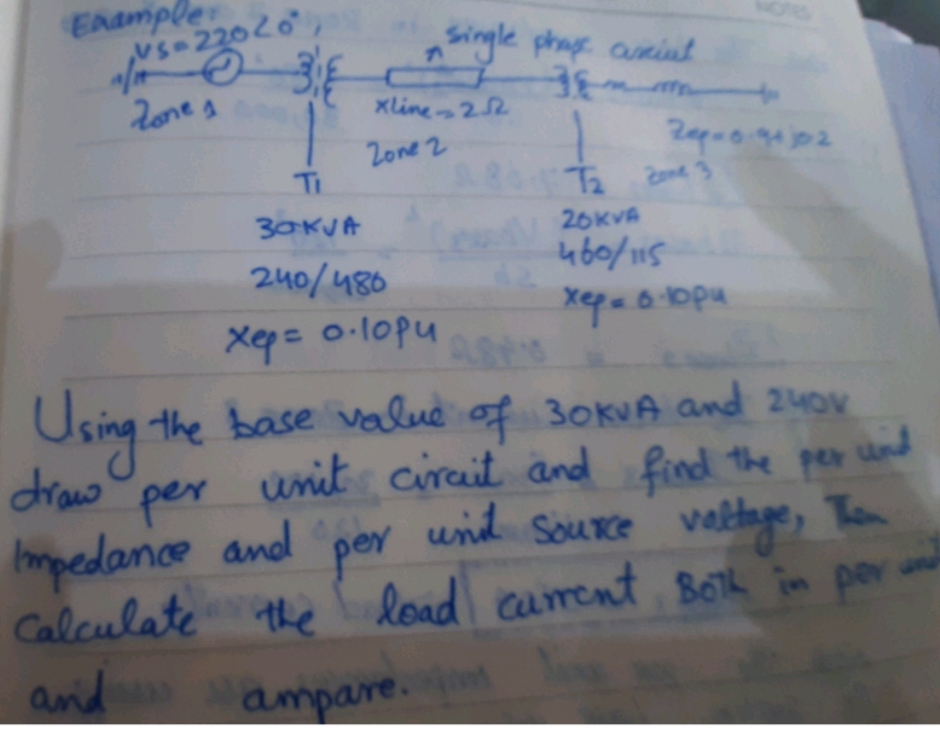 Example:
Vs=220∠0°, Single phase circuit
Zone 1 Xline=2Ω Zep=0.9+j0.2
Zone 2
T1 T2 Zone 3
30KVA 20KVA
240/480 460/115
Xep= 0.10pu Xep= 0.10pu
Using the base value of 30KVA and 240V
draw per unit circuit and find the per unit
Impedance and per unit source voltage, Then
Calculate the load current Both in per unit
and ampare.